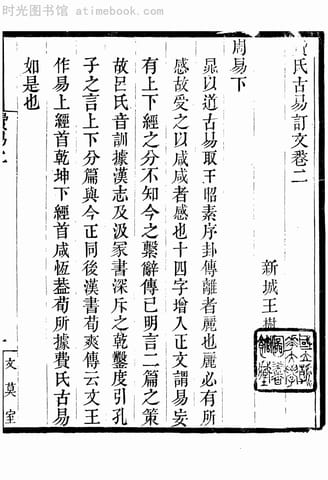 时光图书馆 atimebook.com
氏古易訂文卷二
新城王樹
周易下
晁以道古易取王昭素序卦傳離者麗也麗必有所
感故受之以咸咸者感也十四字增入正文謂易妄
有上下經之分不知今之繫辭傳已明言二篇之策
故呂氏音訓據漢志及汲冢書深斥之乾鑿度引孔
子之言上下分篇與今正同後漢書荀爽傳云文王
作易上經首乾坤下經首咸恆葢荀所據費氏古易
如是也
費易二
一
文莫室